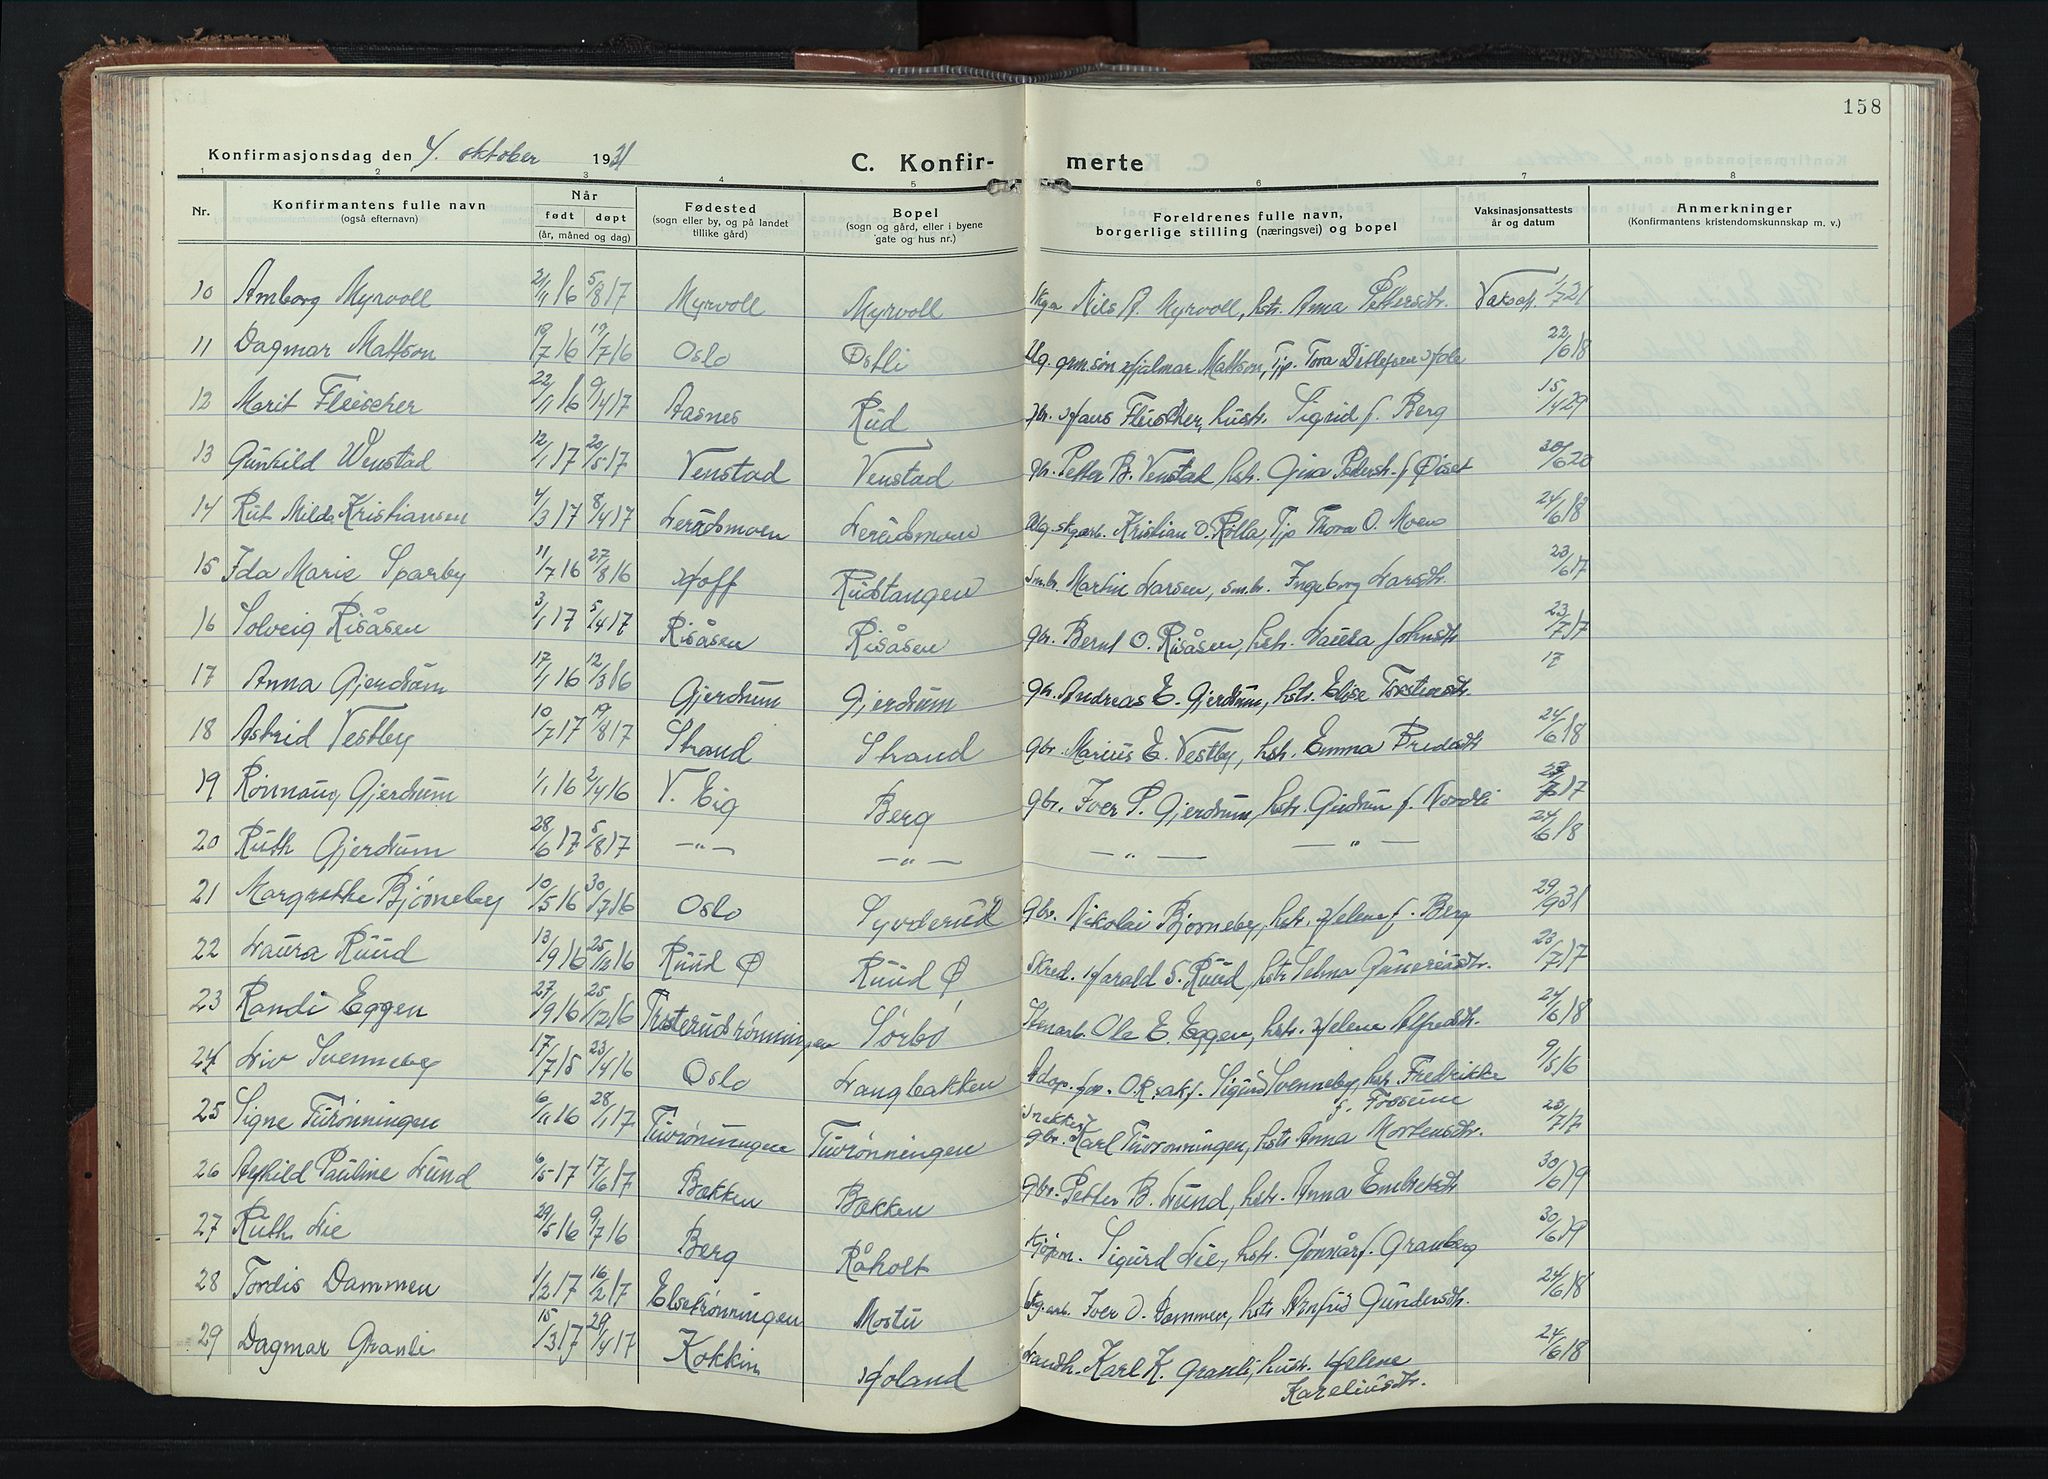 158
Konfirmasjonsdag den 4. oktober 1931
C. Konfirmerte
1 2 3 4 5 6 7 8
Nr. Konfirmantens fulle navn (også efternavn) Når født døpt (år, måned og dag) Fødested (sogn eller by, og på landet tillike gård) Bopel (sogn og gård, eller i byene gate og hus nr.) Foreldrenes fulle navn, borgerlige stilling (næringsvei) og bopel Vaksinasjonsattests år og datum Anmerkninger (Konfirmantens kristendomskunnskap m. v.)
10 Amborg Myrvoll 21/11 16 5/8 17 Myrvoll Myrvoll Nils A. Myrvoll, hstr. Anna Pettersdtr. 1/7 21
11 Dagmar Mattson 19/7 16 Oslo Østli Ug. grm.søn Hjalmar Mattson, Tjp. Tora Ditlefsen Hole 22/6 18
12 Marit Fleischer 22/11 16 9/4 17 Aasnes Rud Hans Fleischer, hustr. Sigrid f. Berg 15/4 29
13 Gunhild Wenstad 12/1 17 20/5 17 Venstad Venstad gbr. Petter B. Venstad, hstr. Gina Pedersdtr. f. Øiset 30/6 20
14 Rut Milda Kristiansen 4/3 17 8/4 17 Lerudsmoen Lerudsmoen Ug. skgarb. Kristian O. Rolla, Tjp Thora O. Moen 24/6 18
15 Ida Marie Sparby 11/7 16 27/8 16 Hoff Rudstangen Smbr. Martin Larsen, smbr. Ingeborg Larsdtr. 23/6 17
16 Solveig Risåsen 3/1 17 5/4 17 Risåsen Risåsen gbr. Bernt O. Risåsen, hstr. Laura Johnsdtr 23/7 17
17 Anna Gjerdrum 17/1 16 12/3 16 Gjerdrum Gjerdrum gbr. Andreas E. Gjerdrum, hstr. Elise Torstensdtr. 17
18 Astrid Vestby 10/7 17 19/8 17 Strand Strand gbr. Marius E. Vestby, hstr. Emma Predsdtr 24/6 18
19 Rønnaug Gjerdrum 1/1 16 2/4 16 V. Eig Berg gbr. Iver P. Gjerdrum, hstr. Gudrun f. Nordli 17
20 Ruth Gjerdrum 28/6 17 5/8 17 —"— —"— —"— —"— 24/6 18
21 Margrethe Bjørneby 10/5 16 30/7 16 Oslo Syvderud gbr. Nikolai Bjørneby, hstr. Helene f. Berg 29/9 31
22 Laura Ruud 13/9 16 Ruud Ø Ruud Ø Skred. Harald S. Ruud, hstr Selma Guneriusdtr. 23/7 17
23 Randi Eggen 27/9 16 25/12 16 Trøsterudrønningen Sørbø Stenarb. Ole E. Eggen, hstr. Helene Alfredsdtr. 24/6 18
24 Liv Svenneby 17/7 15 23/4 16 Oslo Langbakken Adop. for. O.R.sakf. Sigurd Svenneby, hstr. Fredrikke f. Fossum 9/5 16
25 Signe Turønningen 6/11 16 28/1 17 Turønningen Turønningen Snekker gbr. Karl Turønningen, hstr Anna Mortensdtr. 23/7 17
26 Arhild Pauline Lund 6/5 17 17/6 17 Bakken Bakken gbr. Petter B. Lund, hstr. Anna Embretsdtr 30/6 19
27 Ruth Lie 29/5 16 9/7 16 Berg Råholt Kjøpm. Sigurd Lie, hstr. Gunnår f. Granberg 30/6 19
28 Tordis Dammen 1/2 17 16/2 17 Elsetrønningen Mostu Skg.arb. Iver O. Dammen, hstr Arnfrid Gundersdtr. 24/6 18
29 Dagmar Granli 15/3 17 29/4 17 Kokkin Holand Landh. Karl K. Granli, hustr. Helene Kareliusdtr. 24/6 18